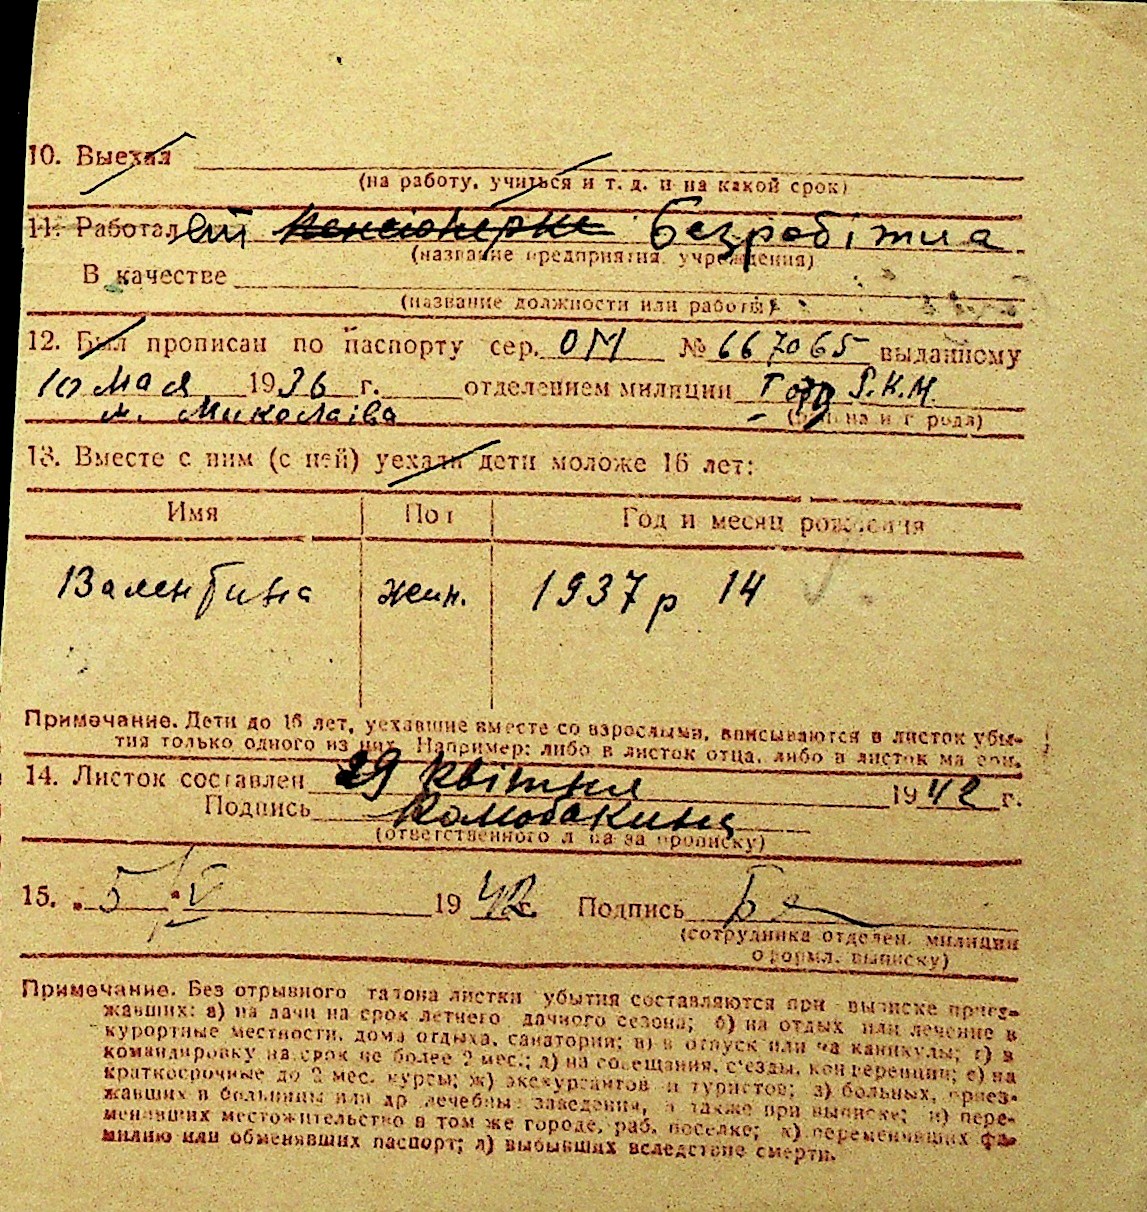 10. Выехал
(на работу, учиться и т. д. и на какой срок)
11. Работал пенсіонерка безробітна
(название предприятия, учреждения)
В качестве
(название должности или работы)
12. Был прописан по паспорту сер. ОМ № 667065 выданному
10 мая 1936 г. отделением милиции Гор Р.К.М.
м. Миколаїва
13. Вместе с ним (с ней) уехали дети моложе 16 лет:
Имя Пол Год и месяц рождения
Валентина жін. 1937 р 14
Примечание. Дети до 16 лет, уехавшие вместе со взрослыми, вписываются в листок убы-
тия только одного из них. Например: либо в листок отца, либо в листок матери.
14. Листок составлен 29 квітня 1942 г.
Подпись
(ответственного лица за прописку)
15. 5 V 1942 г. Подпись
(сотрудника отделен. милиции
оформл. выписку)
Примечание. Без отрывного талона листки убытия составляются при выписке приез-
жавших: а) на дачи на срок летнего дачного сезона; б) на отдых или лечение в
курортные местности, дома отдыха, санатории; в) в отпуск или на каникулы; г) в
командировку на срок не более 2 мес.; д) на совещания, съезды, конференции; е) на
краткосрочные до 2 мес. курсы; ж) экскурсантов и туристов; з) больных, приез-
жавших в больницы или др лечебные заведения, а также при выписке; и) пере-
менивших местожительство в том же городе, раб. поселке; к) переменивших фа-
милию или обменявших паспорт; л) выбывших вследствие смерти.